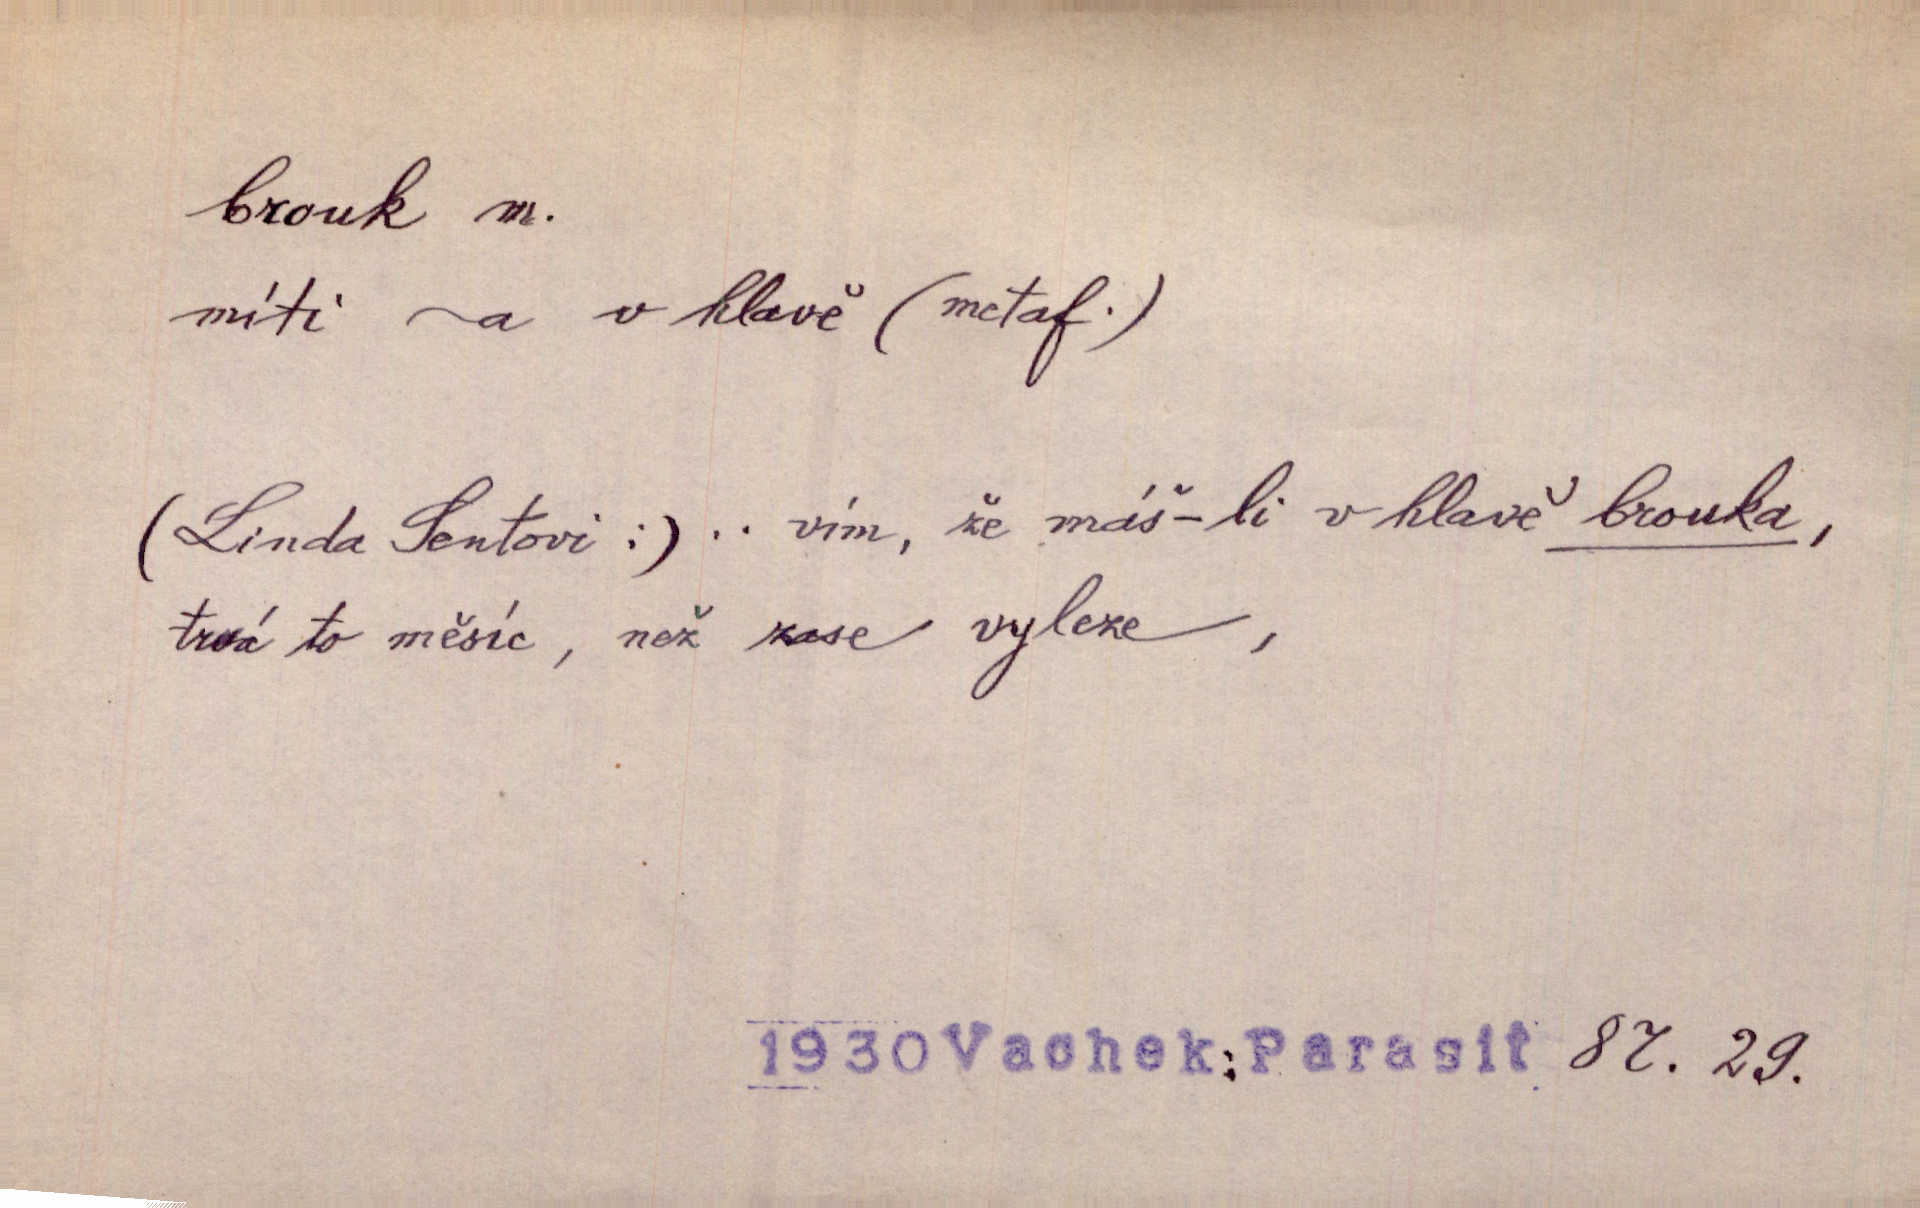 brouk m.
míti ~a v hlavě (metaf.)
(Linda Šentovi:) .. vím, že máš-li v hlavě brouka,
trvá to měsíc, než zase vyleze,
1930 Vachek: Parasit 87. 29.